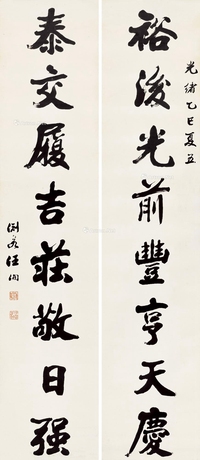 光緒乙巳夏五
裕後光前豐亨天慶
泰交履吉莊敬日强
淵若汪洵